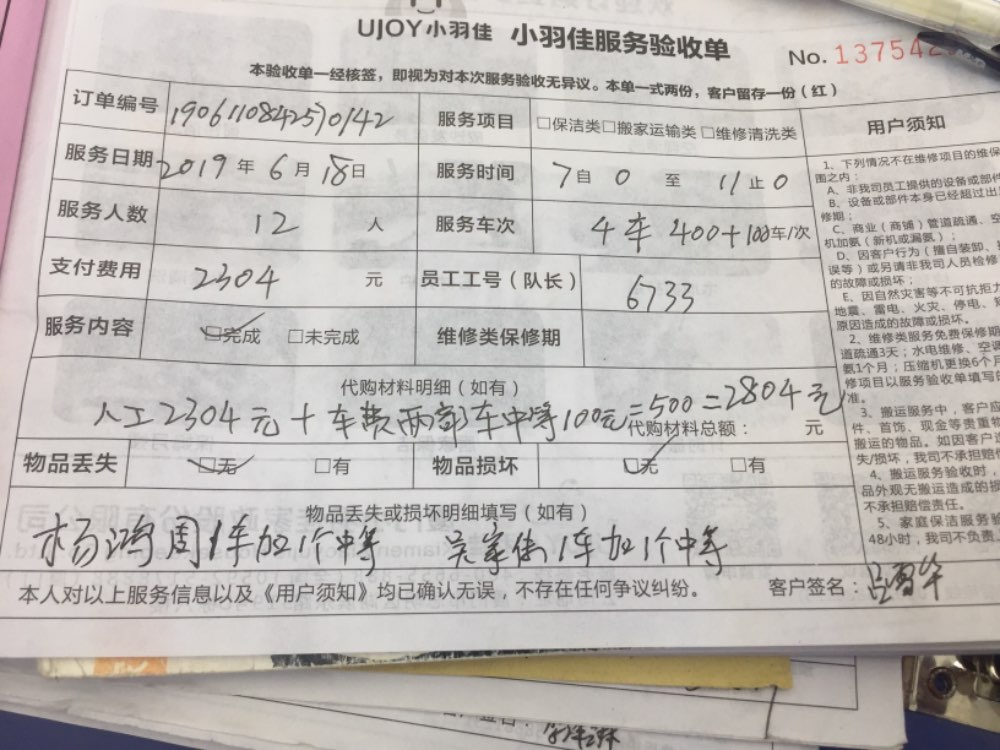 UJOY小羽佳 小羽佳服务验收单 No. 13754
本验收单一经核签，即视为对本次服务验收无异议。本单一式两份，客户留存一份（红）
订单编号 190611084257 0142 服务项目 □保洁类□搬家运输类□维修清洗类
服务日期 2019年6月18日 服务时间 7自0至11止0
服务人数 12人 服务车次 4车 400+100车/次
支付费用 2304元 员工工号（队长） 6733
服务内容 ☑完成 □未完成 维修类保修期
代购材料明细（如有）
人工2304元+车费两部车中等100元=500=2804元
代购材料总额： 元
物品丢失 ☑无 □有 物品损坏 ☑无 □有
物品丢失或损坏明细填写（如有）
杨鸿周1车加1个中等 吴家伟1车加1个中等
本人对以上服务信息以及《用户须知》均已确认无误，不存在任何争议纠纷。 客户签名：
用户须知
1、下列情况不在维修项目的维保
围之内：
A、非我司员工提供的设备或部件
B、设备或部件本身已经超过出
修期；
C、商业（商铺）管道疏通、空
机加氨（新机或漏氨）；
D、因客户行为（擅自装卸、
误等）或另请非我司人员检修
的故障或损坏；
E、因自然灾害等不可抗拒力
地震、雷电、火灾、停电、
原因造成的故障或损坏。
2、维修类服务免费保修期
道疏通3天；水电维修、空调
氨1个月；压缩机更换6个
修项目以服务验收单填写的
准。
3、搬运服务中，客户应
件、首饰、现金等贵重物
搬运的物品。如因客户
失/损坏，我司不承担赔偿
4、搬运服务验收时，
品外观无搬运造成的损
不承担赔偿责任。
5、家庭保洁服务验
48小时，我司不负责。